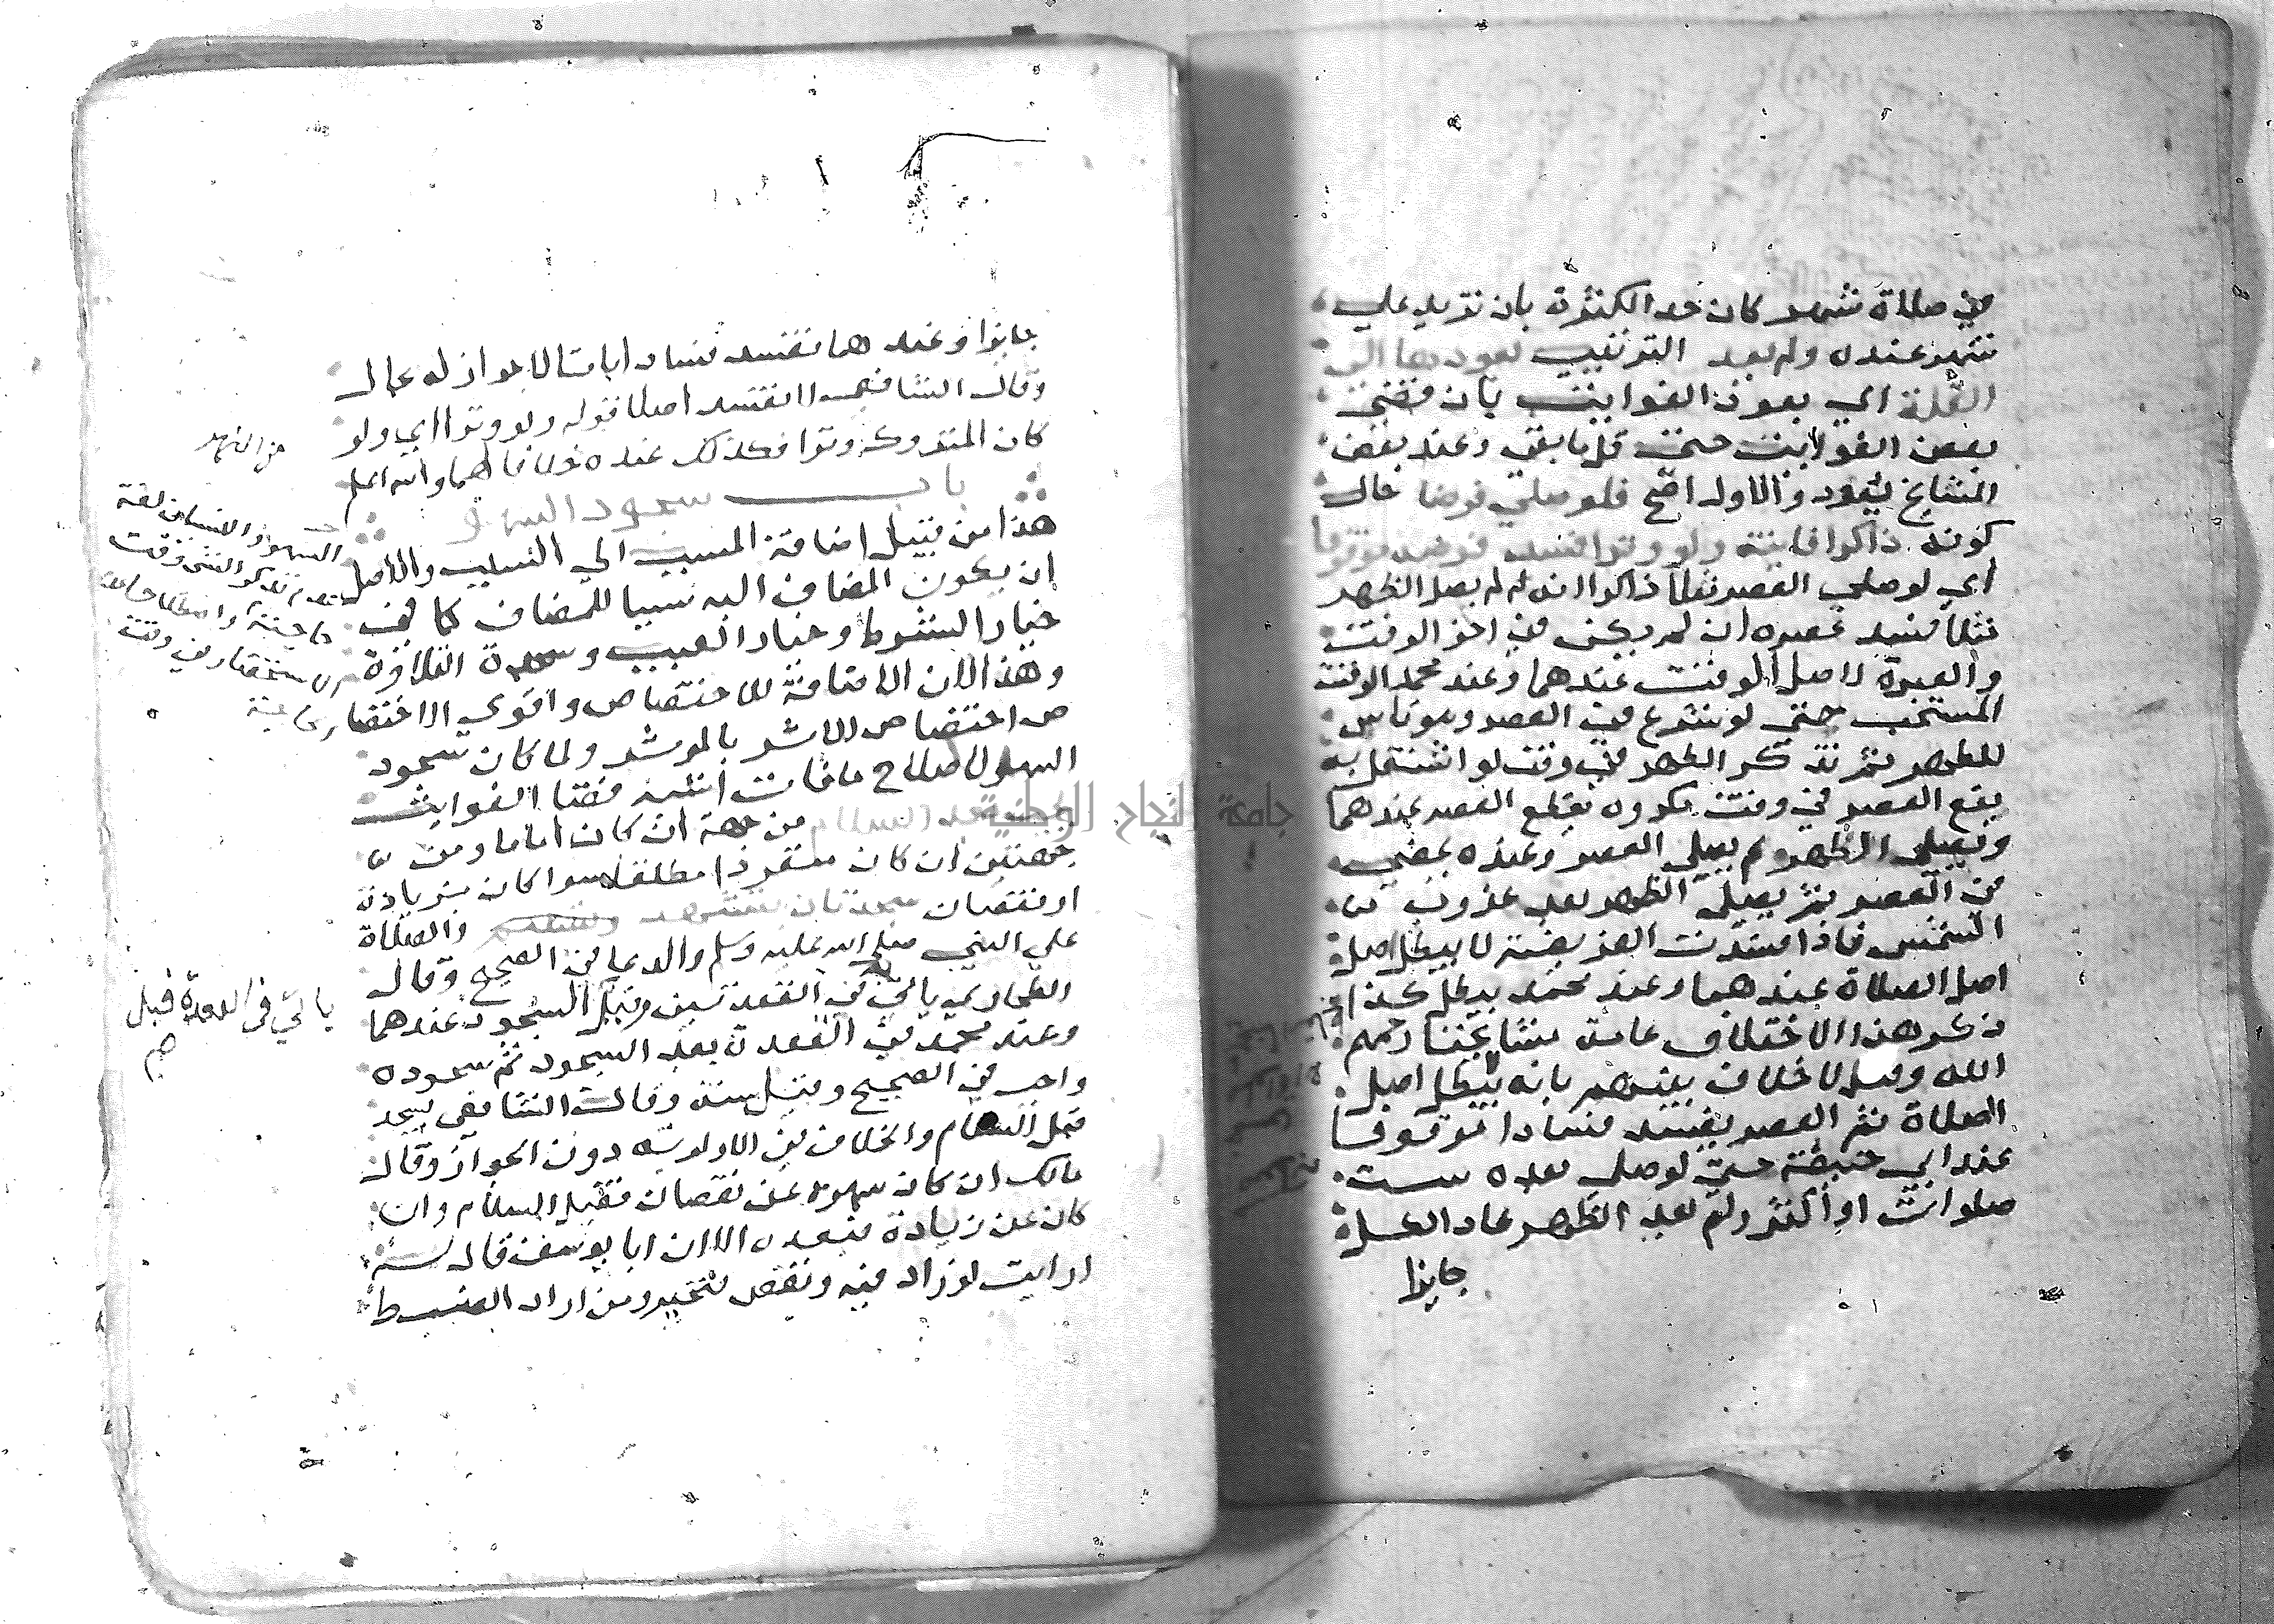 في صلاة شهر كان حد الكثرة بان تزيد علي
شهر عنده ولم يعد الترتيب بعودها الي
القلة اي بعود الفوايت بان قضي
بعض الفوايت حتي قل ما بقي وعند بعض
المشايخ يعود والاول اصح فلو صلي فرضا حال
كونه ذاكرا فايتة ولو وترا فسد فرضه موقوفا
اي لو صلي العصر مثلا ذاكرا انه لم يصل الظهر
مثلا فسد عصره ان لم يكن في اخر الوقت
والعبرة لاصل الوقت عندهما وعند محمد الوقت
المستحب حتي لو شرع في العصر وهو ناس
للظهر ثم تذكر الظهر في وقت لو اشتغل به
يقع العصر في وقت مكروه يقطع العصر عندهما
ويصلي الظهر ثم يصلي العصر وعنده يمضي
في العصر ثم يصلي الظهر بعد غروب
الشمس فاذا فسدت الفريضة لا يبطل اصل
اصل الصلاة عندهما وعند محمد يبطل كذا
ذكر هذا الاختلاف عامة مشايخنا رحمهم
الله وقيل لا خلاف بينهم بانه يبطل اصل
الصلاة ثم العصر يفسد فسادا موقوفا
عند ابي حنيفة حتي لو صلي بعده ست
صلوات او اكثر ولم يعد الظهر عاد الكل
جايزا
جايزا وعندهما تفسد فسادا باتا لا جواز له بحال
وقال الشافعي لا تفسد اصلا قوله ولو وترا اي ولو
كان المتروك وترا فكذلك عنده خلافا لهما والله اعلم
باب سجود السهو
هذا من قبيل اضافة المسبب الي السبب والاصل
ان يكون المضاف اليه سببا للمضاف كما في
خيار الشرط وخيار العيب وسجدة التلاوة
وهذا لان الاضافة للاختصاص واقوي الاختصا
ص اختصاص الاثر بالموثر ولما كان سجود
السهو لاصلاح ما فات اشبه قضا الفوايت
يجب بعد السلام من جهة ان كان اماما ومن
جهتين ان كان منفردا مطلقا سوا كان بزيادة
او نقصان سجدتان بتشهد وتسليم والصلاة
علي النبي صلي الله عليه وسلم والدعا في الصحيح وقال
الطحاوي ياتي به في القعدتين وقيل السجود عندهما
وعند محمد في القعدة بعد السجود ثم سجوده
واجب في الصحيح وقيل سنة وقال الشافعي يسجد
قبل السلام والخلاف في الاولوية دون الجواز وقال
مالك ان كان سهوه عن نقصان فقبل السلام وان
كان عن زيادة فبعده الا ان ابا يوسف قال له
ارايت لو زاد فيه ونقص فتحير ومن اراد الضبط
السهو والنسيان لغة
ياتي في القعدة قبل